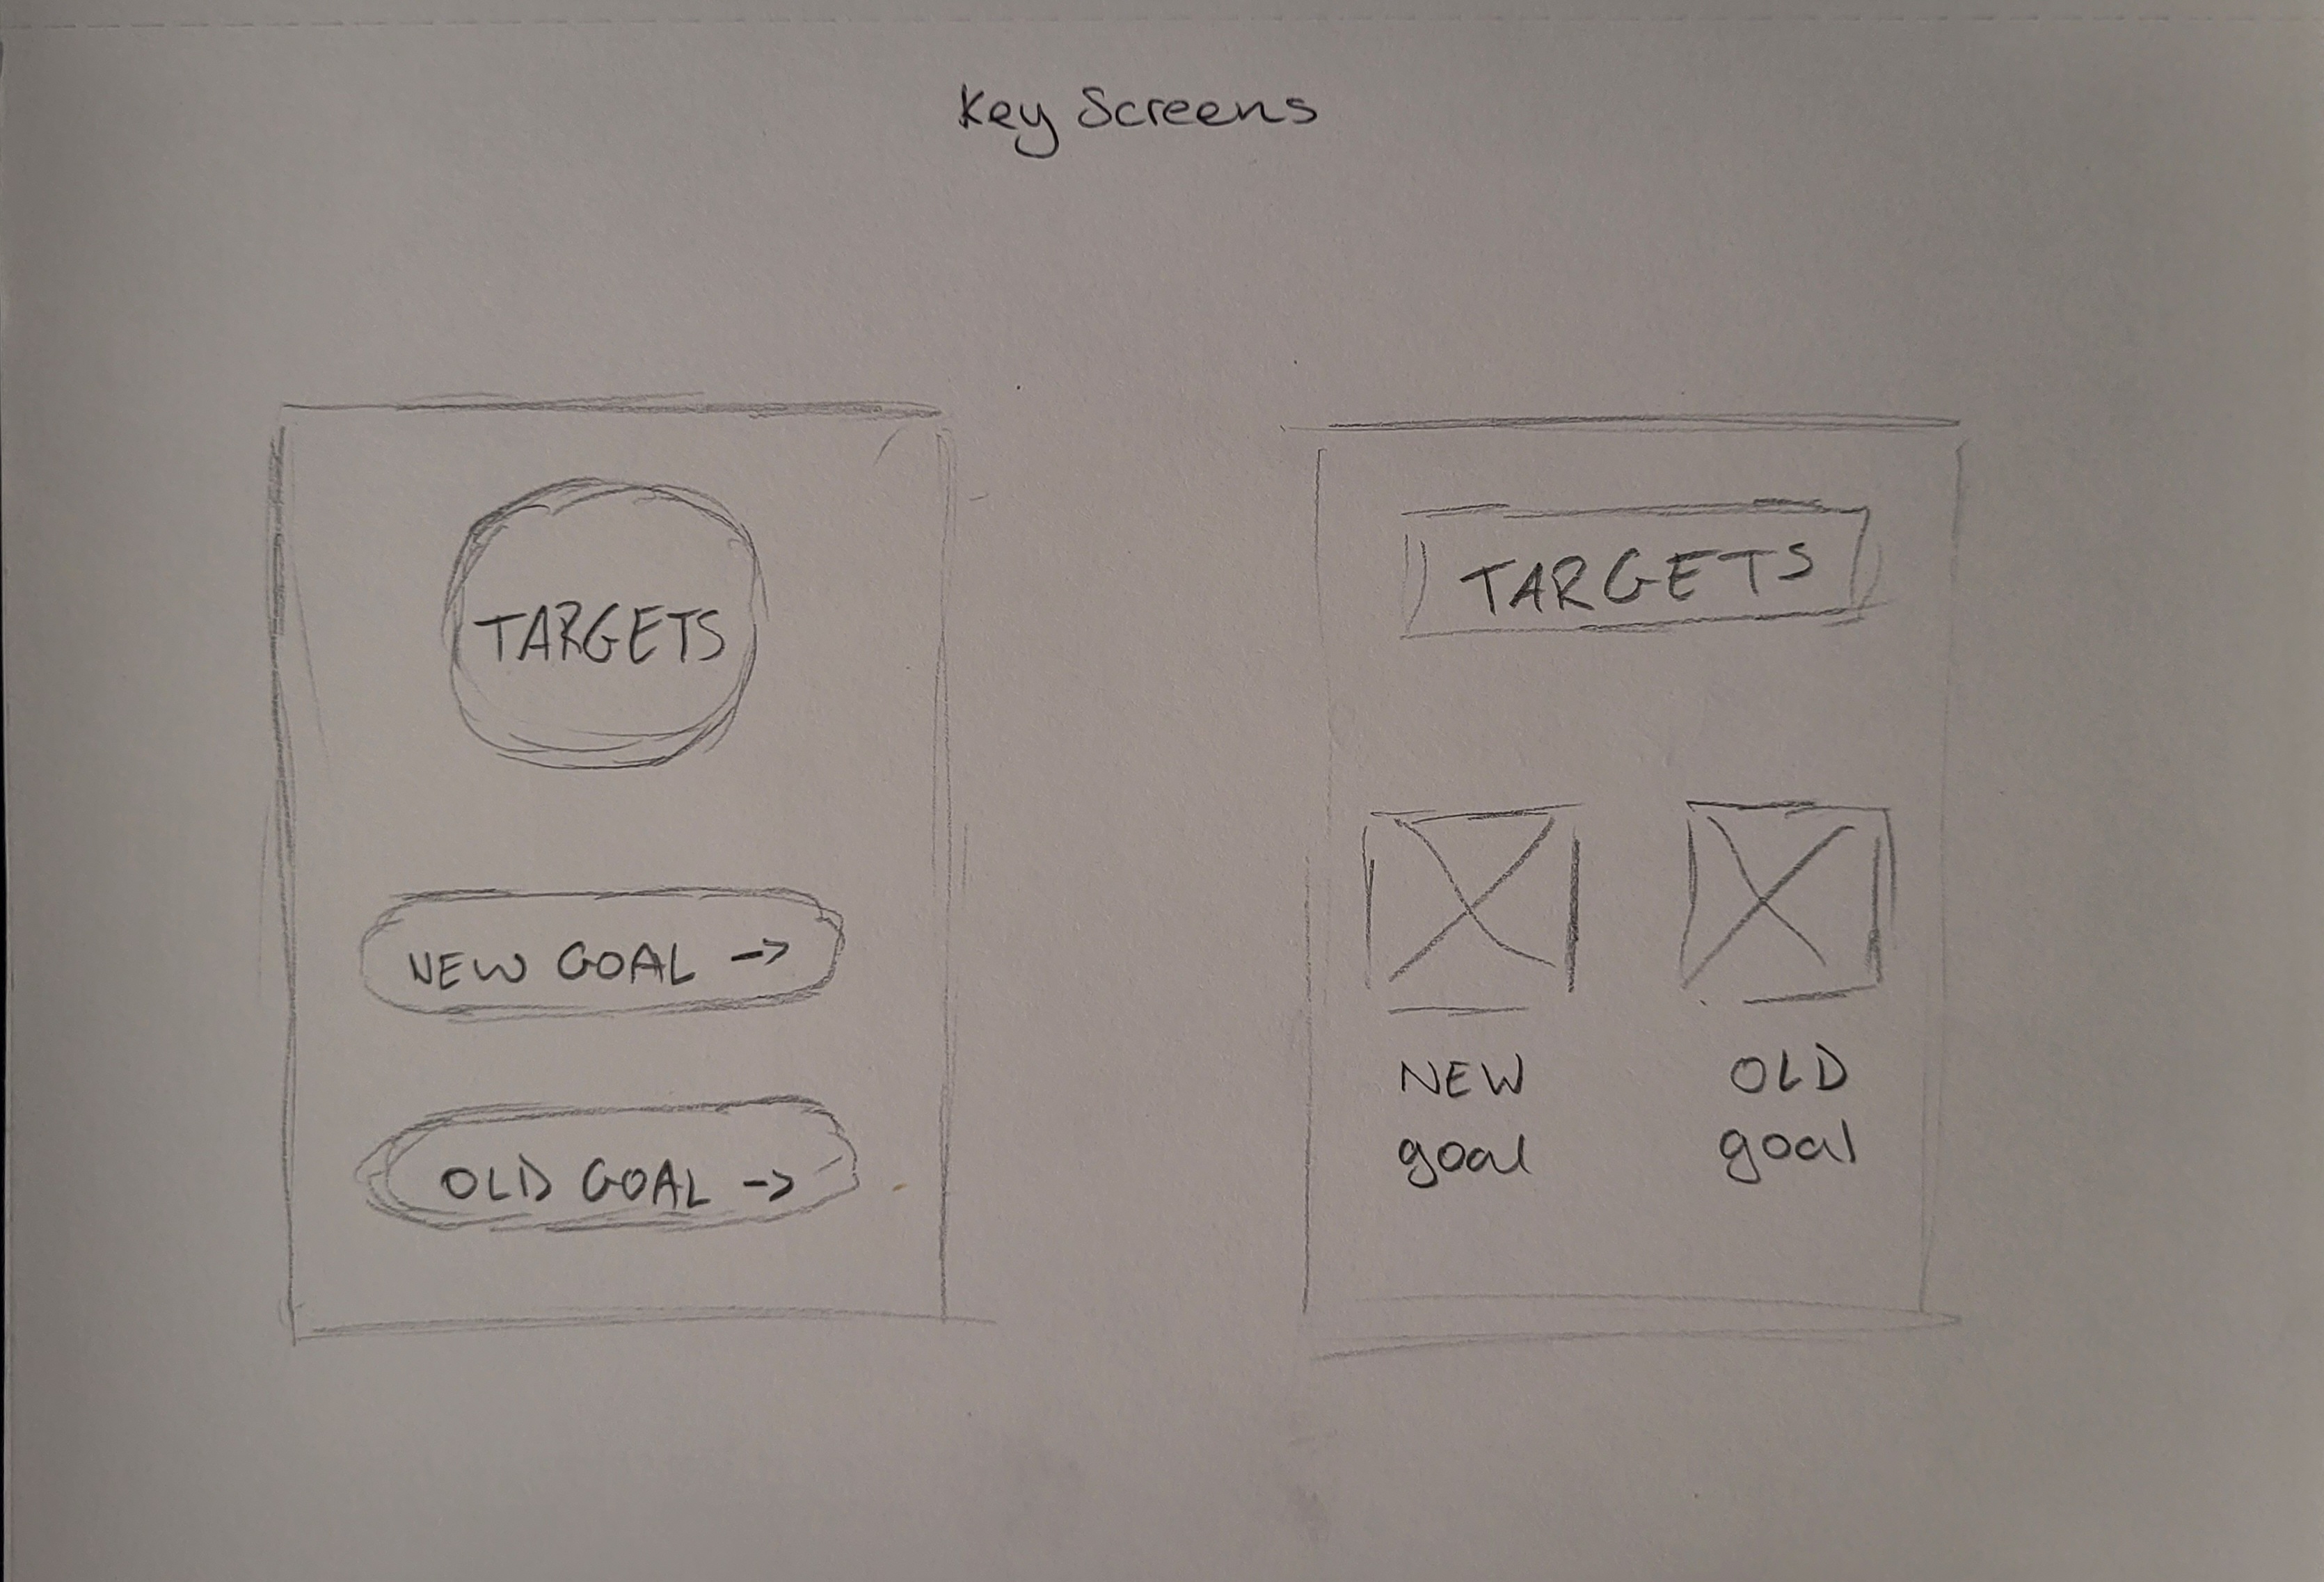 Key Screens
TARGETS
NEW GOAL ->
OLD GOAL ->
TARGETS
NEW
goal
OLD
goal